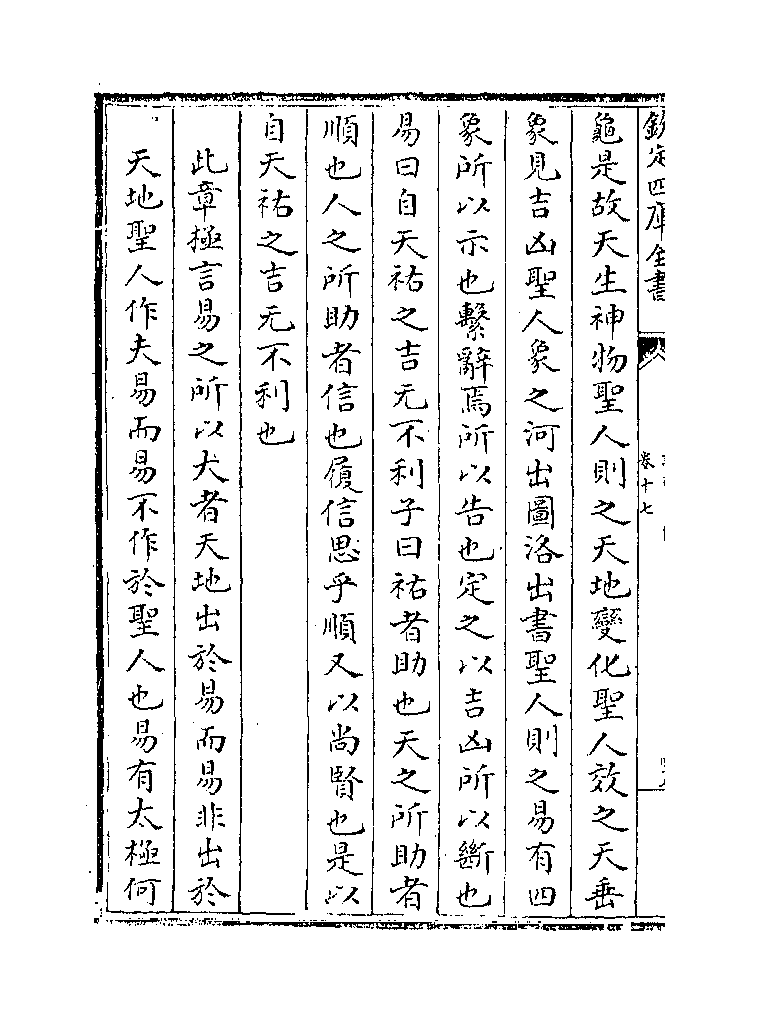 欽定四庫全書
卷十七
龜是故天生神物聖人則之天地變化聖人效之天垂
象見吉凶聖人象之河出圖洛出書聖人則之易有四
象所以示也繫辭焉所以告也定之以吉凶所以斷也
易曰自天祐之吉无不利子曰祐者助也天之所助者
順也人之所助者信也履信思乎順又以尚賢也是以
自天祐之吉无不利也
此章極言易之所以大者天地出於易而易非出於
天地聖人作夫易而易不作於聖人也易有太極何